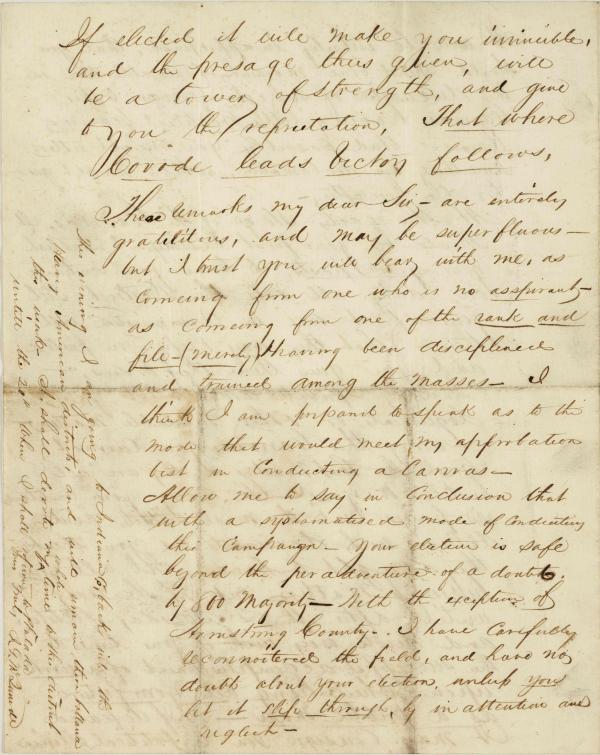 If elected it will make you invincible,
and the presage thus given, will
be a tower of strength, and give
to you the reputation, That where
Covode leads Victory follows,
These remarks my dear Sir – are entirely
gratilitous, and may be superfluous –
but I trust you will bear with me, as
comeing from one who is no asspirant –
as comeing from one of the rank and
file – (merely) Haveing been disciplined
and trained among the masses – I
think I am prepared to speak as to the
mode that would meet my approbation
best in Conducting a Canvas –
Allow me to say in Conclusion that
with a systamatised mode of Conducting
this Campaign – Your election is safe
beyond the peradventure of a doubt.
by 800 Majority – With the exception of
Armstrong County – I have Carefully
reconnoitered the field, and have no
doubt about your election, unless you
let it slip through, by in attention and
neglect –
this evening I am going to Indiana Co, back into the
American districts, and will remain there ballance
this week – I shall devote my whole time to this
untill the 20th When I shall return to